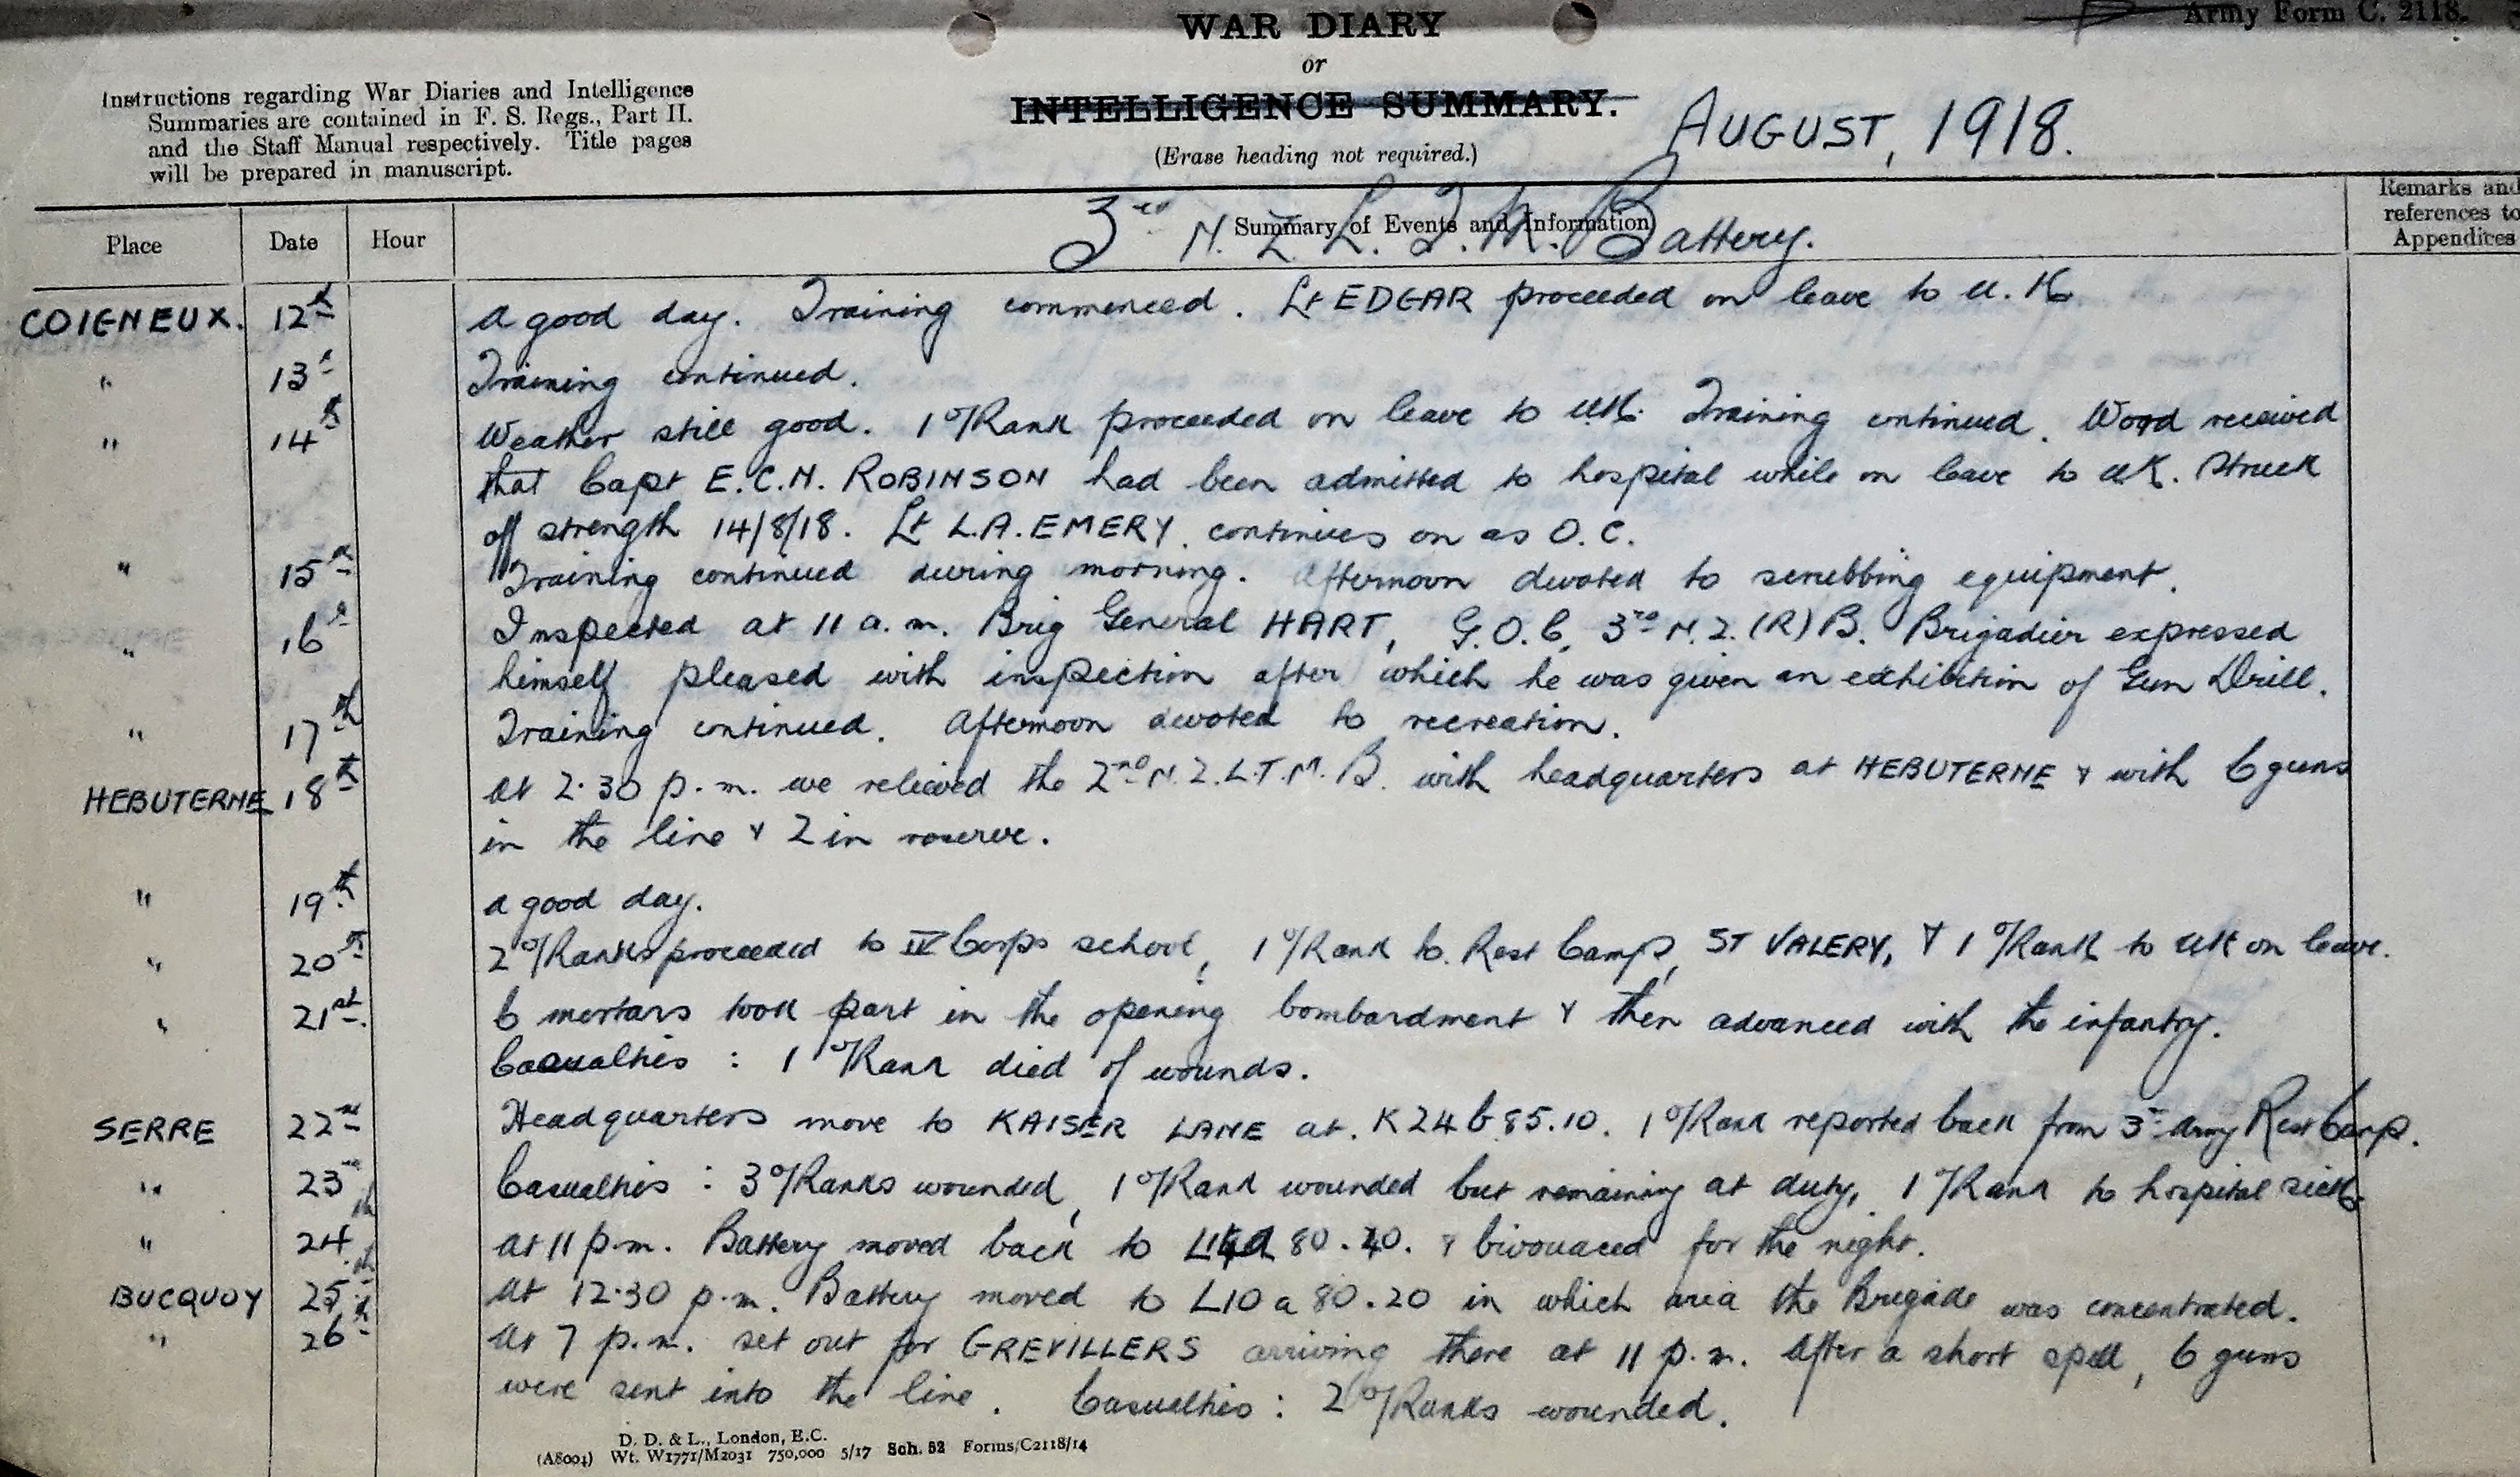 WAR DIARY
Army Form C. 2118.
or
INTELLIGENCE SUMMARY.
(Erase heading not required.)
AUGUST, 1918.
Instructions regarding War Diaries and Intelligence
Summaries are contained in F. S. Regs., Part II.
and the Staff Manual respectively. Title pages
will be prepared in manuscript.
Place Date Hour Summary of Events and Information Remarks and references to Appendices
3rd N. Z. L. T. M. Battery.
COIGNEUX. 12th A good day. Training commenced. Lt EDGAR proceeded on leave to U.K.
" 13th Training continued.
" 14th Weather still good. 1 O/Rank proceeded on leave to UK. Training continued. Word received
that Capt E.C.N. ROBINSON had been admitted to hospital while on leave to UK. Struck
off strength 14/8/18. Lt L.A. EMERY. continues on as O.C.
" 15th Training continued during morning. Afternoon devoted to scrubbing equipment.
" 16th Inspected at 11 a.m. Brig General HART, G.O.C, 3rd N.Z.(R)B. Brigadier expressed
himself pleased with inspection after which he was given an exhibition of Gun Drill.
" 17th Training continued. Afternoon devoted to recreation.
HEBUTERNE 18th At 2.30 p.m. we relieved the 2nd N.Z.L.T.M.B. with headquarters at HEBUTERNE & with 6 guns
in the line & 2 in reserve.
" 19th A good day.
" 20th 2 O/Ranks proceeded to IV Corps school, 1 O/Rank to Rest Camp, ST VALERY, & 1 O/Rank to UK on leave.
" 21st. 6 mortars took part in the opening bombardment & then advanced with the infantry.
Casualties : 1 O/Rank died of wounds.
SERRE 22nd Headquarters move to KAISER LANE at K24b85.10. 1 O/Rank reported back from 3rd Army Rest Camp.
" 23rd Casualties : 3 O/Ranks wounded, 1 O/Rank wounded but remaining at duty, 1 O/Rank to hospital sick
" 24th At 11 p.m. Battery moved back to 80.40. & bivouaced for the night.
BUCQUOY 25th At 12.30 p.m. Battery moved to L10a80.20 in which area the Brigade was concentrated.
" 26th At 7 p.m. set out for GREVILLERS arriving there at 11 p.m. After a short spell, 6 guns
were sent into the line. Casualties : 2 O/Ranks wounded.
D. D. & L., London, E.C.
(A8004) Wt. W1771/M2031 750,000 5/17 Sch. 52 Forms/C2118/14